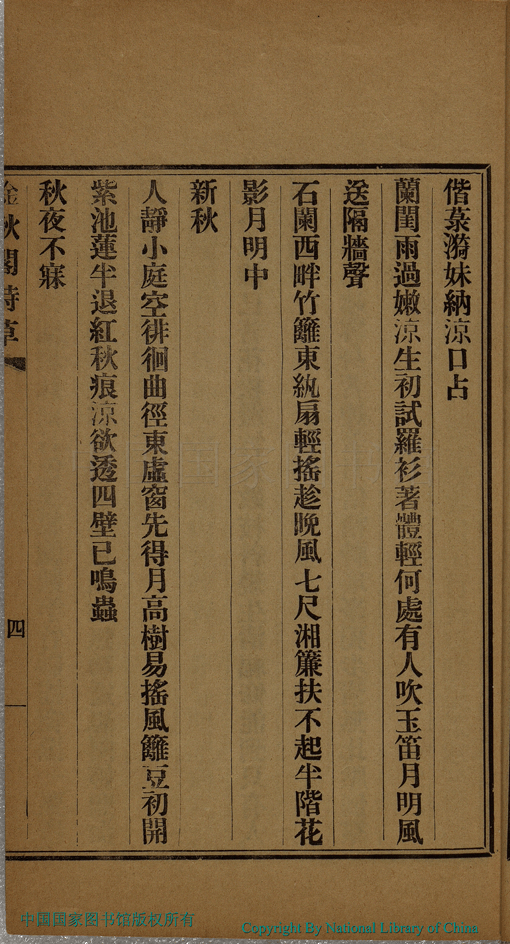 偕菉漪妹納涼口占
蘭閨雨過嫩涼生初試羅衫著體輕何處有人吹玉笛月明風
送隔牆聲
石闌西畔竹籬東紈扇輕搖趁晚風七尺湘簾扶不起半階花
影月明中
新秋
人靜小庭空徘徊曲徑東虛窗先得月高樹易搖風籬豆初開
紫池蓮半退紅秋痕涼欲透四壁已鳴蟲
秋夜不寐
秋閣詩草
四
中国国家图书馆版权所有
Copyright By National Library of China